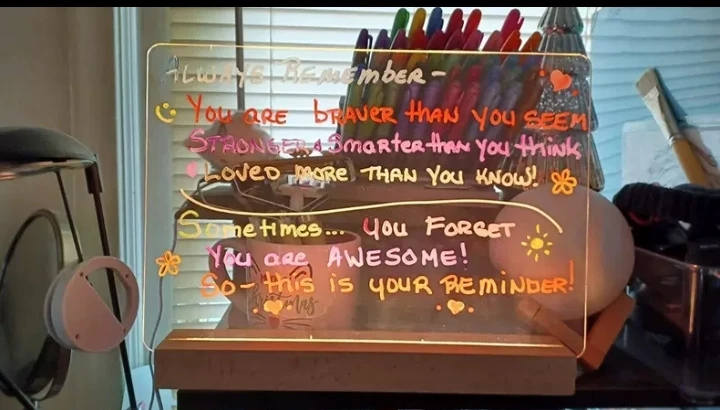 ALWAYS REMEMBER-
YOU ARE bRAVER THAN YOU SEEM
STRONGER & SmarterTHAN YOU think
LOVED MORE THAN YOU KNOW!
Sometimes... YOU FORGET
YOU are AWESOME!
SO - this is YOUR REMINDER!